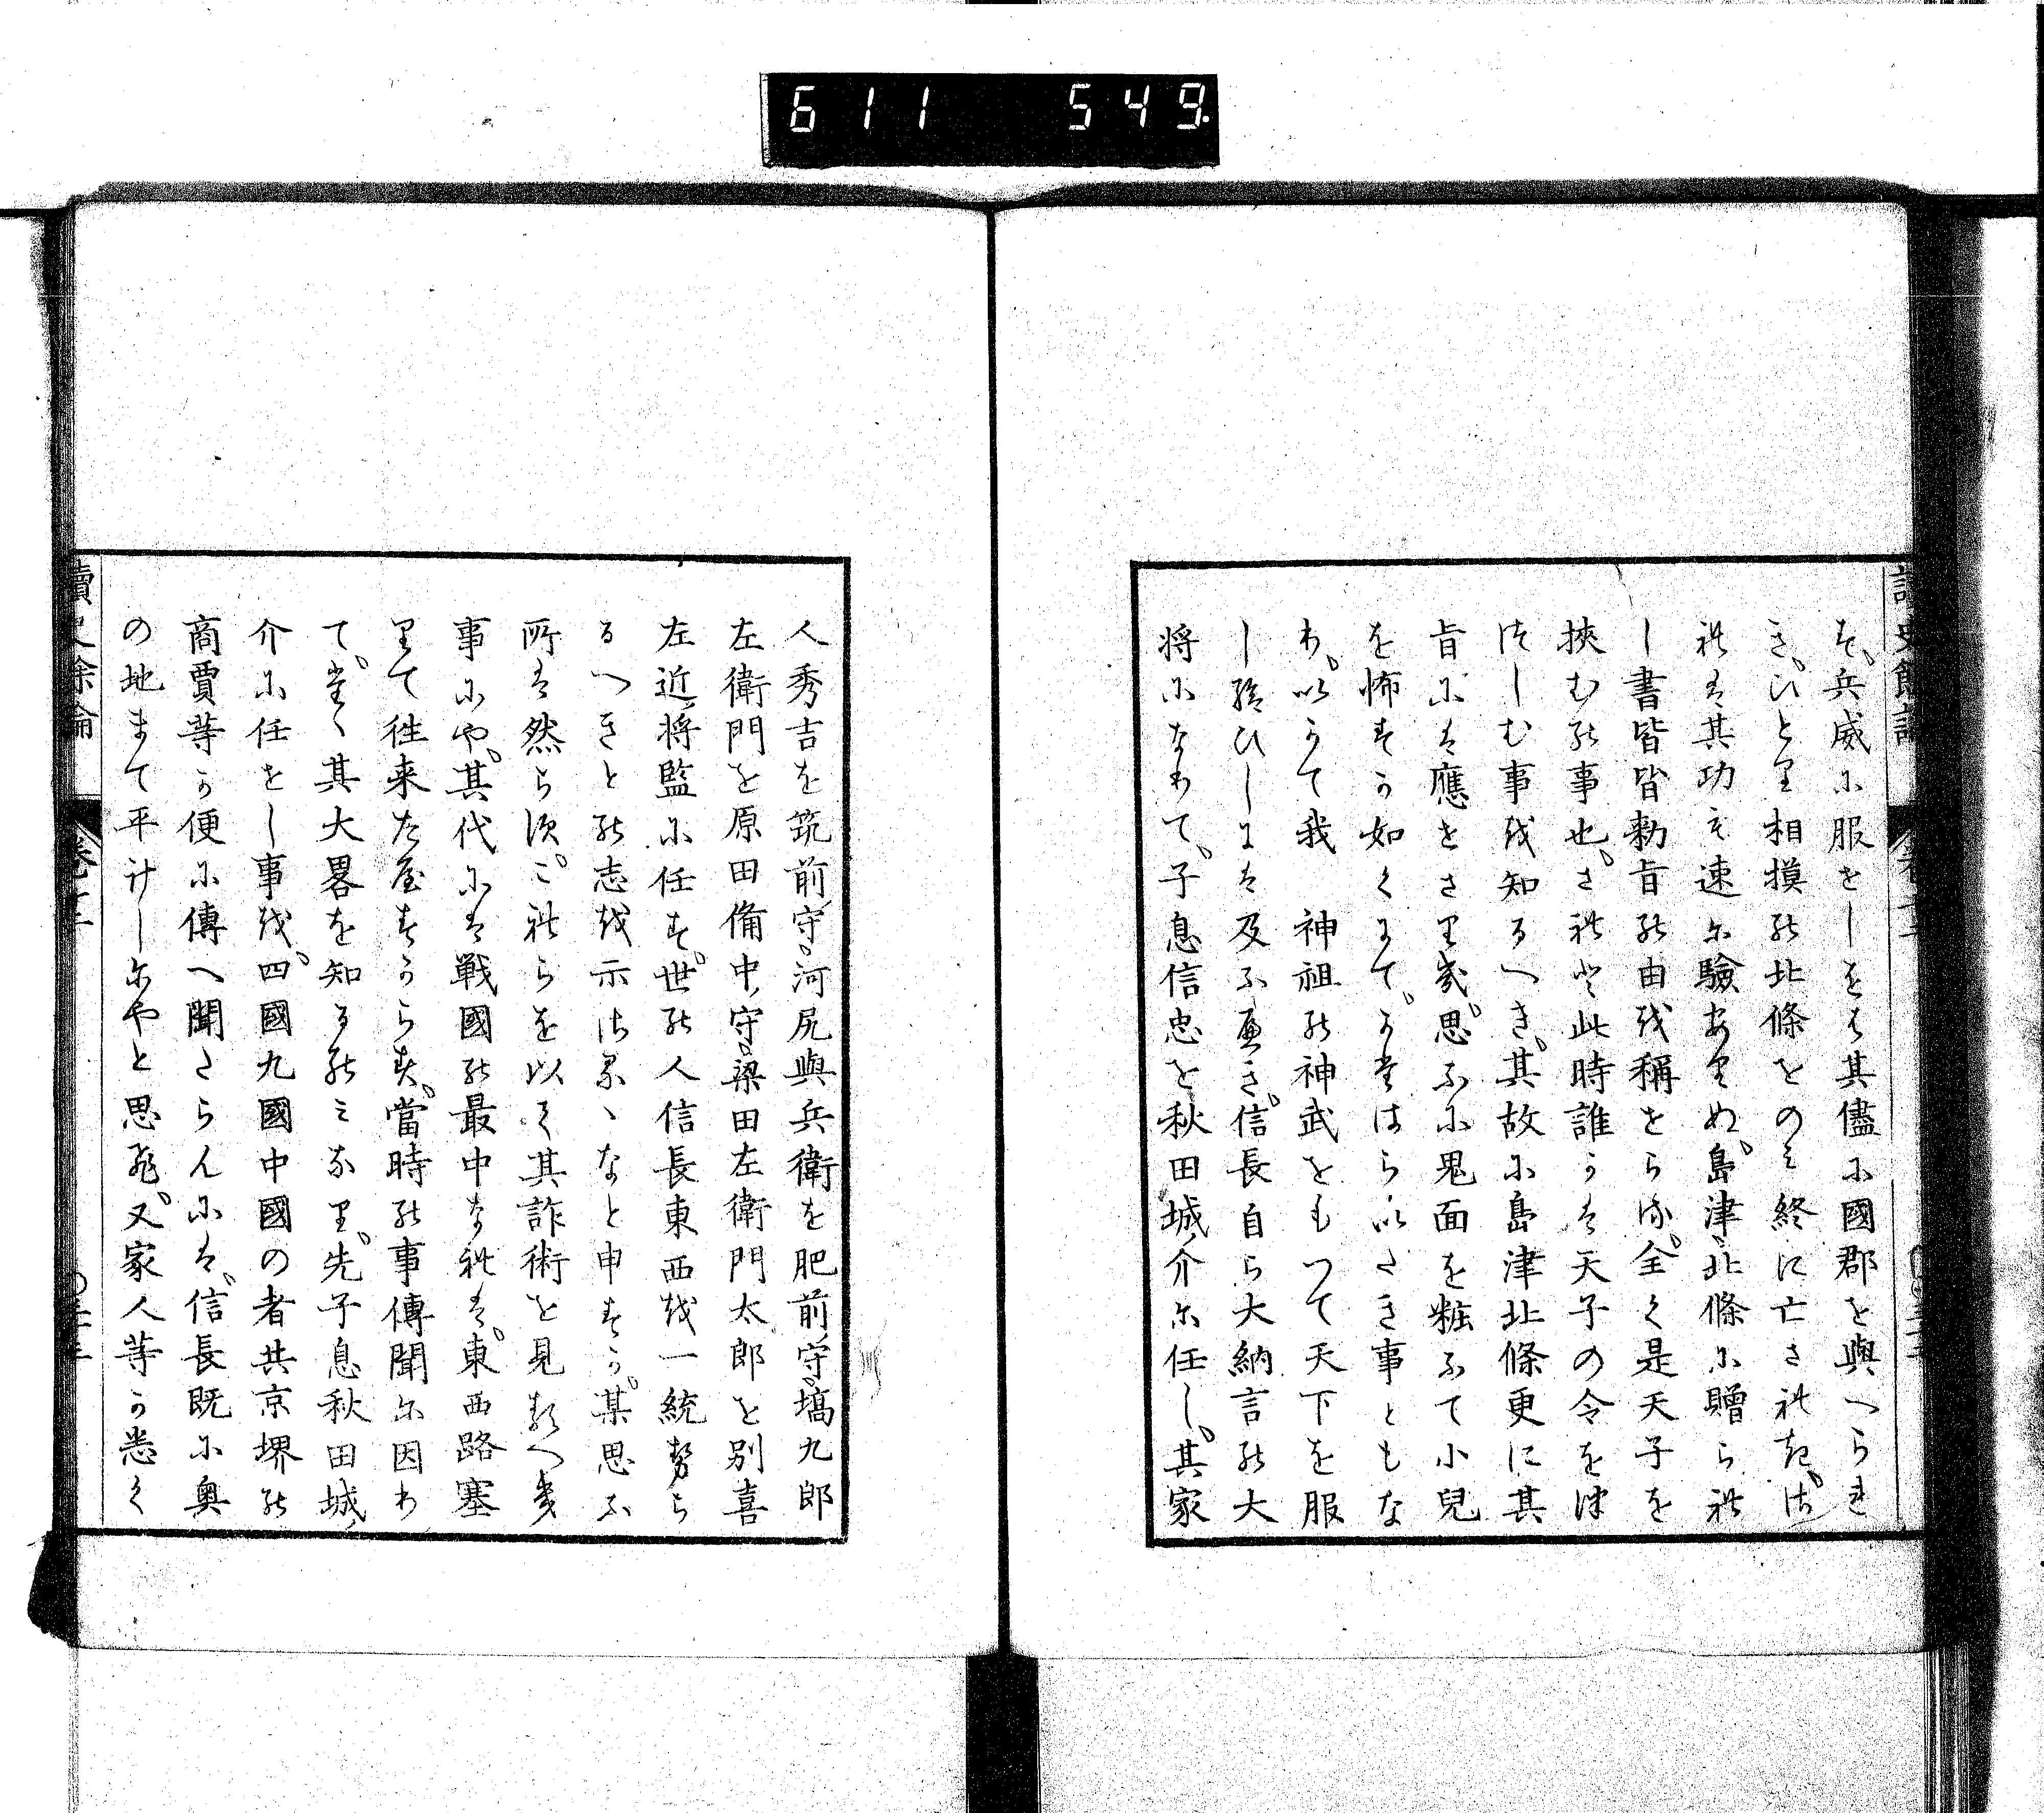 611 549
す。兵威に服せしをは其儘に國郡を與へられ
き。ひとり相摸の北條をのミ終に亡されき。さ
れは其功も速に驗ありぬ。島津、北條に贈られ
し書皆皆勅旨の由を稱せらる。全く是天子を
挾むの事也。されと此時誰かは天子の令を
しむ事を知るへき。其故に島津北條更に其
旨には應せさりき。思ふに鬼面を粧ふて小兒
を怖すか如くにて。かたはらいたき事ともな
り。以かて我 神祖の神武をもつて天下を服
し給ひしには及ふへき。信長自ら大納言の大
将になりて。子息信忠を秋田城介に任し。其家
人秀吉を筑前守。河尻與兵衛を肥前守。塙九郎
左衛門を原田備中守。梁田左衛門太郎を別喜
左近将監に任す。世の人信長東西を一統せら
るへきとの志を示さるゝなと申すか。某思ふ
所は然らす。これらを以て其詐術を見るへき
事にや。其代には戰國の最中なれは。東西路塞
りて往来たやすからす。當時の事傳聞に因り
て。堂〻其大畧を知るのミなり。先子息秋田城
介に任せし事を。四國九國中國の者共京堺の
商賈等か便に傳へ聞さらんには。信長既に奥
の地まて平けしにやと思れ。又家人等か悉く
讀史餘論 卷十二